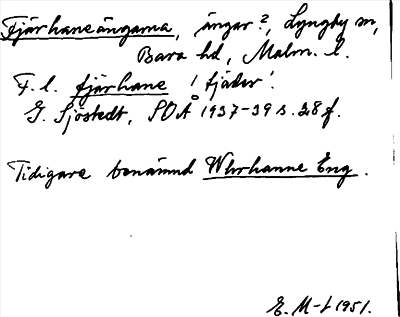 Fjärhaneängarna, ängar?, Lyngby sn,
Bara hd, Malm. l.
F. l. fjärhane 'fjäder'.
G. Sjöstedt, SOÅ 1937-39 s. 38 f.
Tidigare benämnd Whrhanne Eng.
E. M-f 1951.